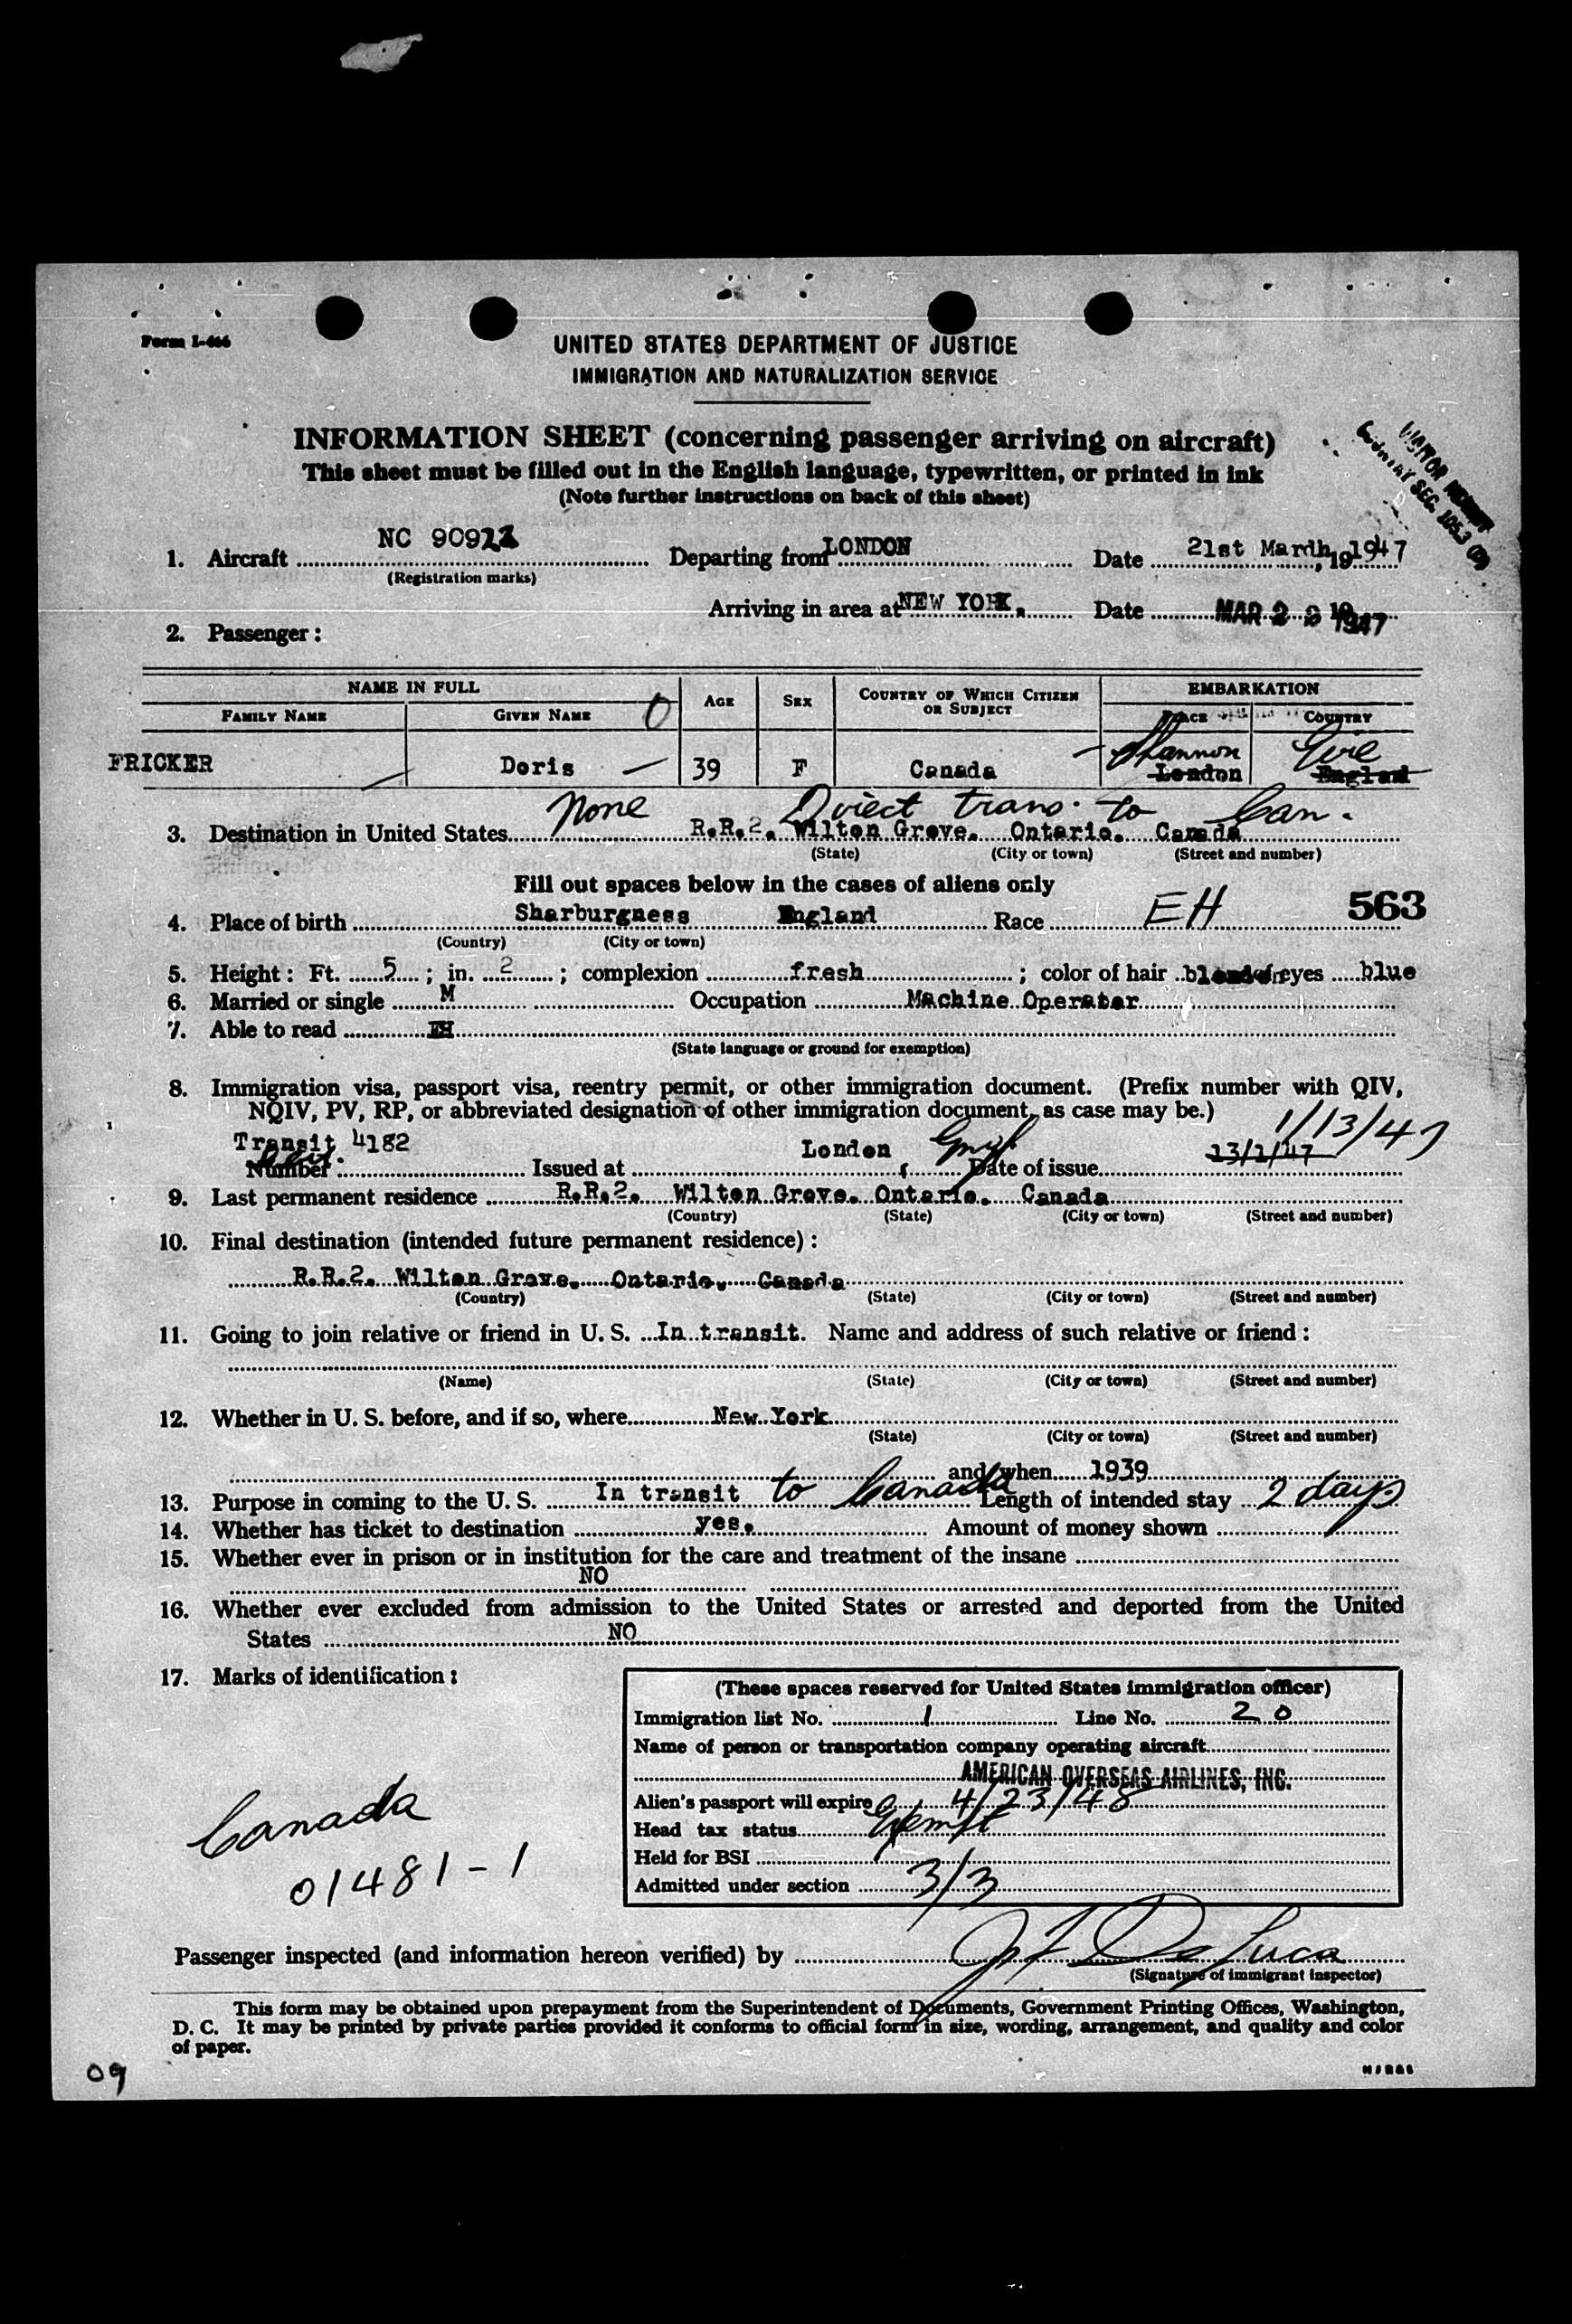 Form I-466
UNITED STATES DEPARTMENT OF JUSTICE
IMMIGRATION AND NATURALIZATION SERVICE
INFORMATION SHEET (concerning passenger arriving on aircraft)
This sheet must be filled out in the English language, typewritten, or printed in ink
(Note further instructions on back of this sheet)
VISITOR
SEC. 1053
1. Aircraft NC 9092 Departing from LONDON Date 21st Mardh, 19 1947
(Registration marks)
Arriving in area at NEW YORK. Date MAR 2 1947
2. Passenger:
NAME IN FULL O AGE SEX COUNTRY OF WHICH CITIZEN OR SUBJECT EMBARKATION
FAMILY NAME GIVEN NAME PLACE COUNTRY
Shannon Eire
FRICKER Doris 39 F Canada London England
None Direct trans. to Can.
3. Destination in United States R.R.2. Wilton Grove. Ontario. Canada
(State) (City or town) (Street and number)
Fill out spaces below in the cases of aliens only
4. Place of birth Sharburgness England Race EH 563
(Country) (City or town)
5. Height: Ft. 5; in. 2; complexion fresh; color of hair eyes blue
6. Married or single M Occupation Machine Operator
7. Able to read EH
(State language or ground for exemption)
8. Immigration visa, passport visa, reentry permit, or other immigration document. (Prefix number with QIV,
NQIV, PV, RP, or abbreviated designation of other immigration document, as case may be.)
1/13/47
Transit 4182
Number Issued at London, Date of issue 13/1/47
9. Last permanent residence R.R.2. Wilton Grove. Ontario. Canada
(Country) (State) (City or town) (Street and number)
10. Final destination (intended future permanent residence):
R.R.2. Wilton Grove. Ontario. Canada
(Country) (State) (City or town) (Street and number)
11. Going to join relative or friend in U. S. In transit. Name and address of such relative or friend:
(Name) (State) (City or town) (Street and number)
12. Whether in U. S. before, and if so, where New York
(State) (City or town) (Street and number)
and when 1939
13. Purpose in coming to the U. S. In transit to Canada Length of intended stay 2 days
14. Whether has ticket to destination yes. Amount of money shown
15. Whether ever in prison or in institution for the care and treatment of the insane
NO
16. Whether ever excluded from admission to the United States or arrested and deported from the United
States NO
17. Marks of identification:
(These spaces reserved for United States immigration officer)
Immigration list No. 1 Line No. 20
Name of person or transportation company operating aircraft
AMERICAN OVERSEAS AIRLINES, INC.
Alien's passport will expire 4/23/48
Head tax status Exempt
Held for BSI
Admitted under section 3/3
Canada
01481-1
Passenger inspected (and information hereon verified) by J F De Luca
(Signature of immigrant inspector)
This form may be obtained upon prepayment from the Superintendent of Documents, Government Printing Offices, Washington,
D. C. It may be printed by private parties provided it conforms to official form in size, wording, arrangement, and quality and color
of paper.
09